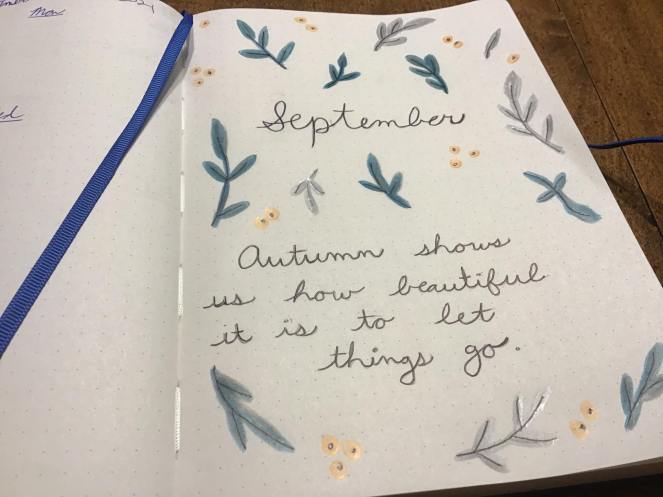 Mon
September
Autumn shows
us how beautiful
it is to let
things go.